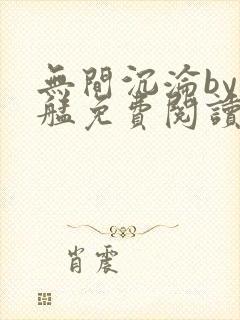 無間沉淪by
艦免費閱讀
肖震